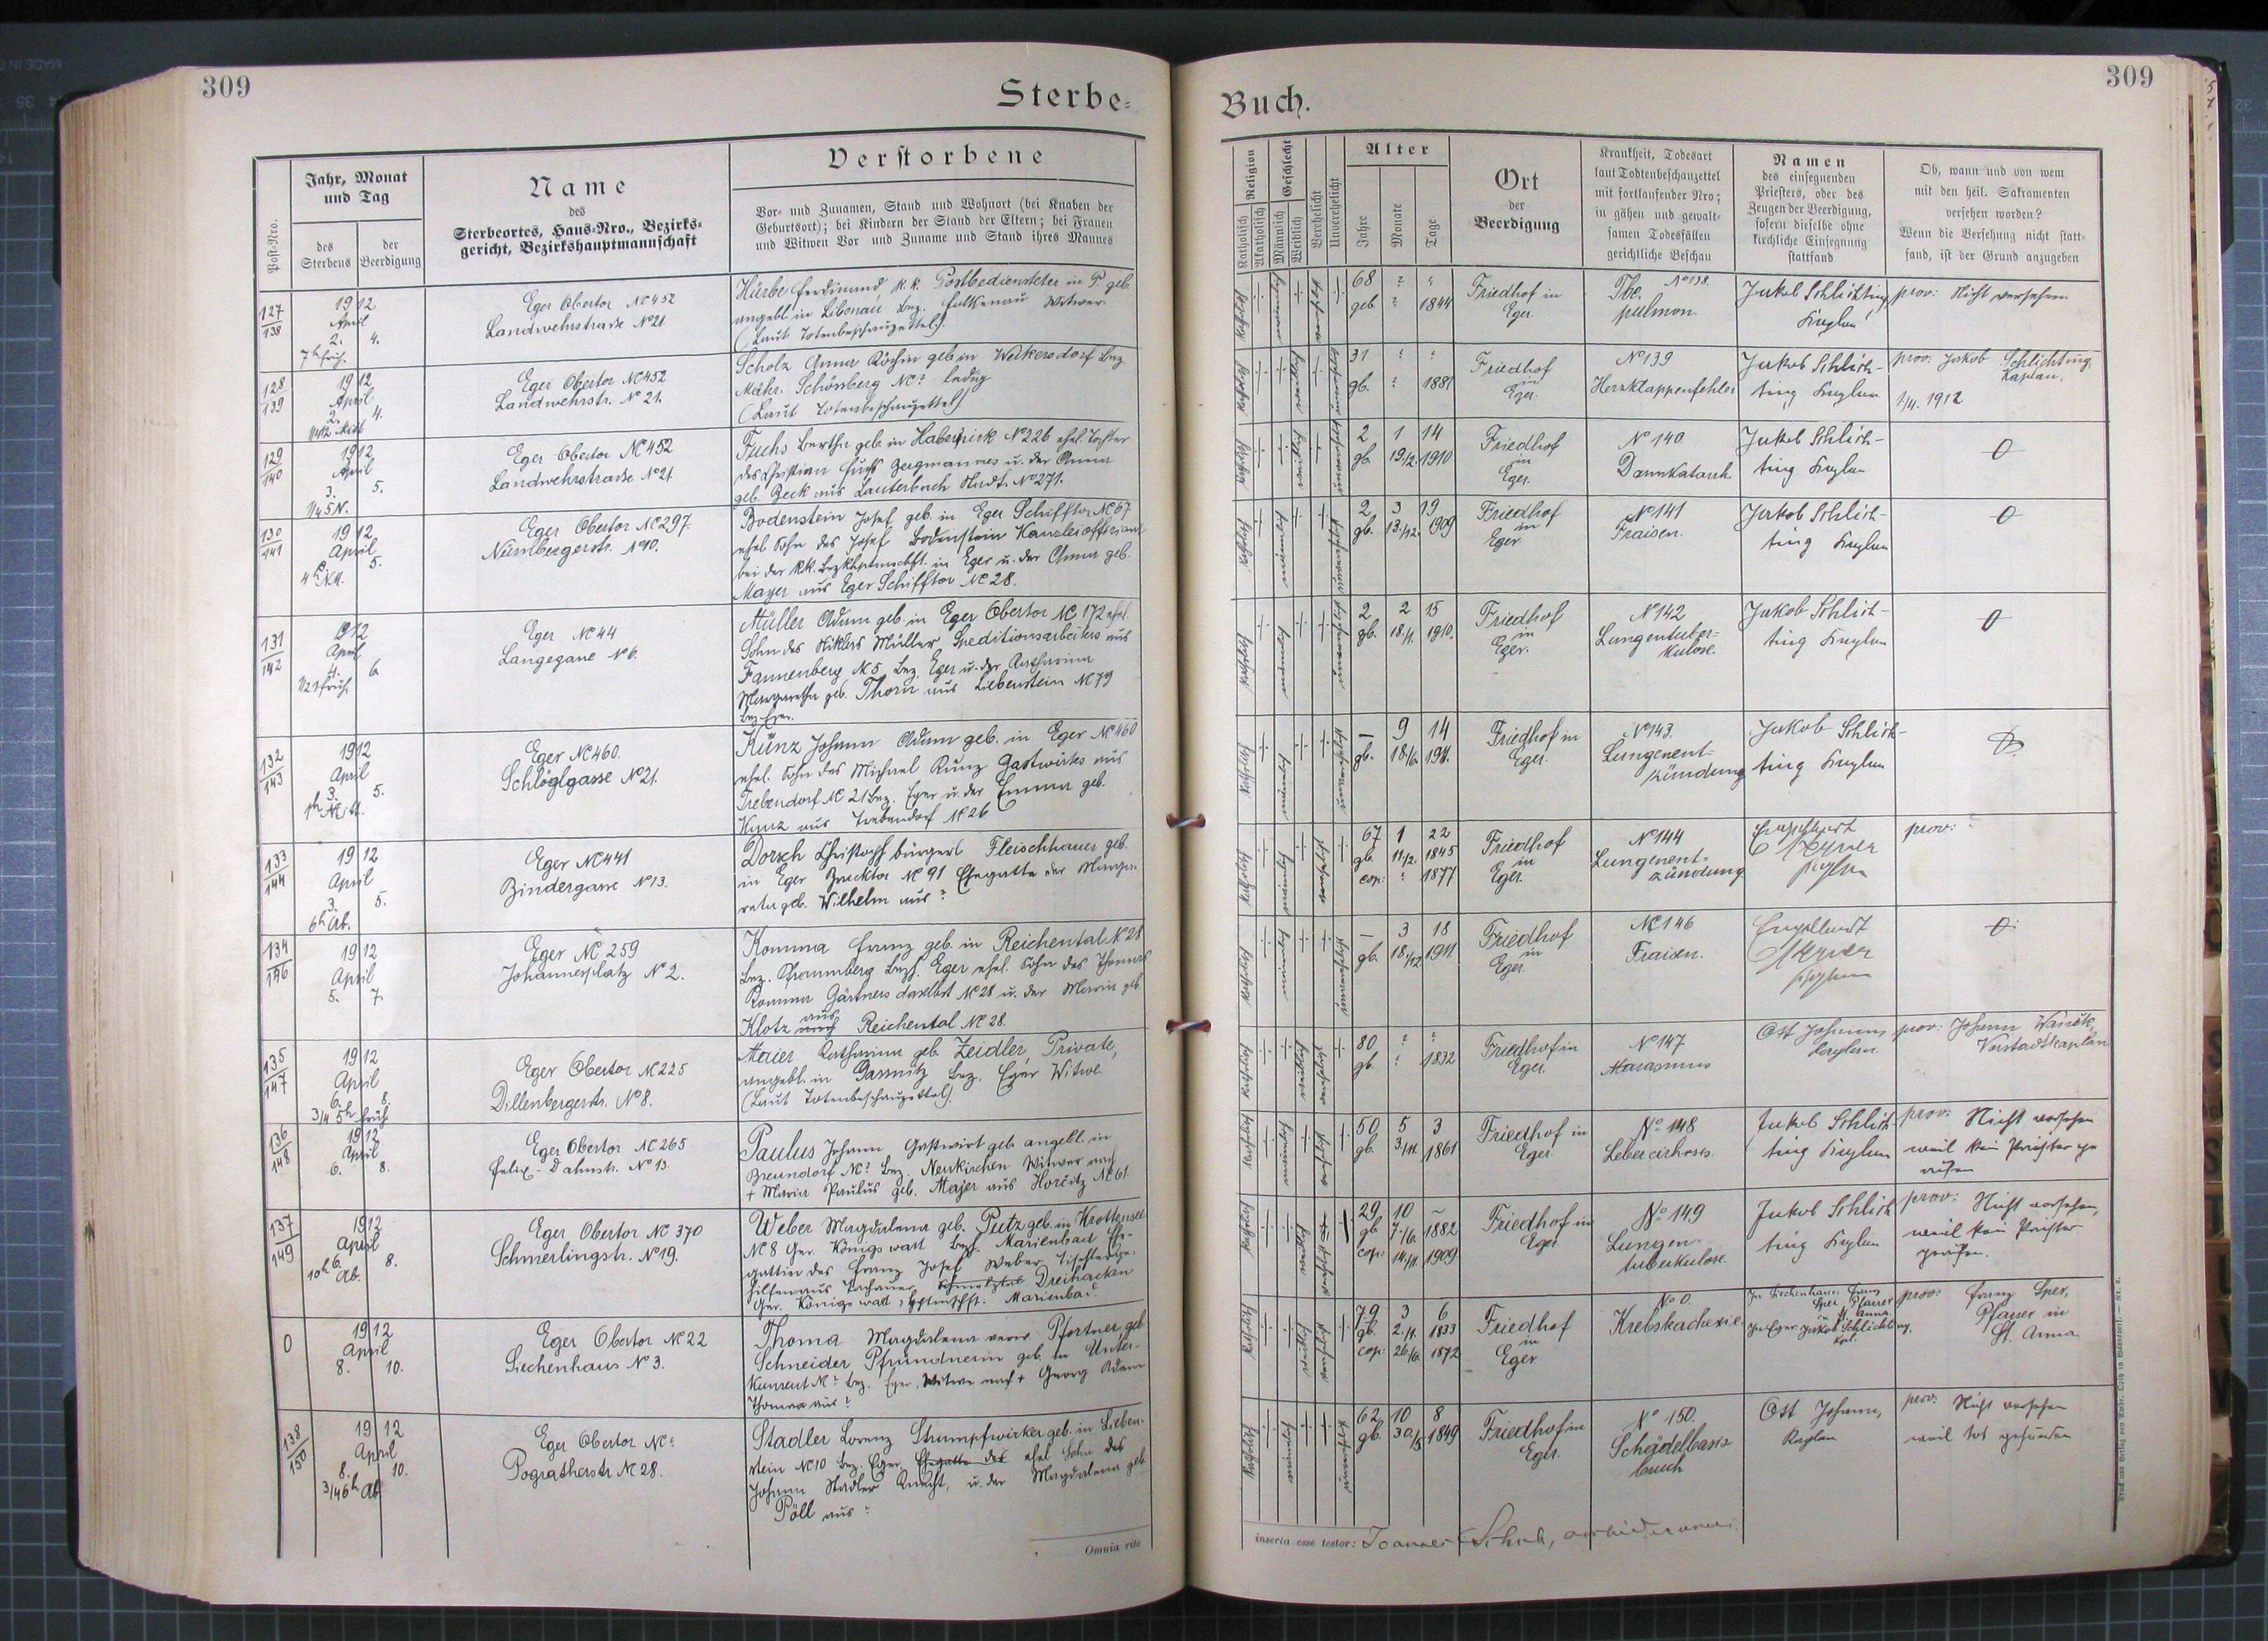 309
Sterbe-
Jahr, Monat
und Tag
Post-Nro.
des
Sterbens
der
Beerdigung
Name
des
Sterbeortes, Haus-Nro., Bezirks-
gericht, Bezirkshauptmannschaft
Verstorbene
Vor- und Zunamen, Stand und Wohnort (bei Knaben der
Geburtsort); bei Kindern der Stand der Eltern; bei Frauen
und Witwen Vor und Zuname und Stand ihres Mannes
127
138
1912
April
2. 4.
7h früh.
Eger Obertor NC 452
Landwehrstrasse No 21.
Ferdinand k.k. Postbediensteter in P. geb.
angebl. in Libenau Bez. Falkenau Witwer.
(Laut Totenbeschauzettel).
128
139
1912
April
2. 4.
Eger Obertor NC 452
Landwehrstr. No 21.
Scholz Anna Köchin geb. in Weikersdorf Bez.
Mähr. Schönberg NC? ledig
(Laut Totenbeschauzettel).
129
140
1912
April
3. 5.
1/4 5 N.
Eger Obertor NC 452
Landwehrstrasse No 21
Fuchs Bertha geb. in Haberspirk No 226 ehel. Tochter
des Christian Fuchs Bergmannes u. der Anna
geb. Beck aus Lauterbach Stadt. No 271.
130
141
1912
April
5.
Eger Obertor NC 297.
Nürnbergerstr. No 10.
Bodenstein Josef geb. in Eger Schifftor NC 67
ehel. Sohn des Josef Bodenstein Kanzleioffiziant
bei der kk. in Eger u. der Anna geb.
Mayer aus Eger Schifftor NC 28.
131
142
1912
April
4. 6
1/2 1 früh.
Eger NC 44
Langegasse No 6.
Müller Adam geb. in Eger Obertor NC 172 ehel.
Sohn des Niklas Müller Speditionsarbeiters aus
Tannenberg NC 5 Bez. Eger u. der Katharina
Margaretha geb. Thoma aus Liebenstein NC 79
Bez. Eger.
132
143
1912
April
3. 5.
Eger NC 460.
Schlöglgasse No 21.
Künz Johann Adam geb. in Eger NC 460
ehel. Sohn des Michael Kunz Gastwirtes aus
Trebendorf NC 21 Bez. Eger u. der Emma geb.
Kunz aus Trebendorf NC 26
133
144
1912
April
3. 5.
6h Ab.
Eger NC 441
Bindergasse No 13.
Dorsch Christoph bürgerl. Fleischhauer geb.
in Eger Brucktor NC 91 Ehegatte der Marga-
reta geb. Wilhelm aus?
134
146
1912
April
5. 7.
Eger NC 259
Johannesplatz No 2.
Komma Franz geb. in Reichental NC 28
Bez. Eger ehel. Sohn des Thomas
Komma Gärtners daselbst NC 28 u. der Maria geb.
aus
Klotz Reichental NC 28.
135
147
1912
April
6. 8.
3/4 5h früh
Eger Obertor NC 225
Dillenbergerstr. No 8.
Maier Katharina geb. Zeidler, Private,
angebl. in Gassnitz Bez. Eger Witwe
(Laut Totenbeschauzettel).
136
148
1912
April
6. 8.
Eger Obertor NC 265
Felix-Dahnstr. No 13.
Paulus Johann Gastwirt geb. angebl. in
NC? Bez. Neukirchen Witwer nach
+ Maria Paulus geb. Majer aus Horčitz NC 61.
137
149
1912
April
6. 8.
10h Ab.
Eger Obertor NC 370
Schmerlingstr. No 19.
Weber Magdalena geb. Putz geb. in Krottensee
NC 8 Ger. Königswart Bezh. Marienbad Ehe-
gattin des Franz Josef Weber Tischlerge-
hilfen aus Dreihacken
Ger. Königswart, Marienbad.
0
1912
April
8. 10.
Eger Obertor NC 22
Siechenhaus No 3.
Thoma Magdalena verw. Pfortner geb.
Schneider Pfründnerin geb. in Unter-
kunreut NC? Bez. Eger, Witwe nach + Georg Adam
Thoma aus?
138
150
1912
April
8. 10.
3/4 6h Ab
Eger Obertor NC?
Pogratherstr NC 28.
Stadler Lorenz Strumpfwirker geb. in Lieben-
stein NC 10 Bez. Eger, Ehegatte des ehel. Sohn des
Johann Stadler Knecht, u. der Magdalena geb.
Pöll aus?
Omnia rite
Buch.
309
Religion
Katholisch
Akatholisch
Geschlecht
Männlich
Weiblich
Verehelicht
Unverehelicht
Alter
Jahre
Monate
Tage
Ort
der
Beerdigung
Krankheit, Todesart
laut Todtenbeschauzettel
mit fortlaufender Nro;
in gähen und gewalt-
samen Todesfällen
gerichtliche Beschau
Namen
des einsegnenden
Priesters, oder des
Zeugen der Beerdigung,
sofern dieselbe ohne
kirchliche Einsegnung
stattfand
Ob, wann und von wem
mit den heil. Sakramenten
versehen worden?
Wenn die Versehung nicht statt-
fand, ist der Grund anzugeben
68 ? ?
geb. ? 1844
Friedhof in
Eger
No 138.
Tbc.
pulmon.
Jakob Schlichting
Kaplan
prov: Nicht versehen
31 ? ?
gb. ? 1881
Friedhof
in
Eger.
No 139
Herzklappenfehler
Jakob Schlich-
ting Kaplan
prov: Jakob Schlichting,
Kaplan,
1/4. 1912
2 1 14
gb. 19/2. 1910
Friedhof
in
Eger.
No 140
Darmkatarrh
Jakob Schlich-
ting Kaplan
0
2 3 19
gb. 13/12. 1909
Friedhof
in
Eger.
No 141
Fraisen.
Jakob Schlich-
ting Kaplan
0
2 2 15
gb. 18/1. 1910.
Friedhof
in
Eger.
No 142
Lungentuber-
kulose.
Jakob Schlich-
ting Kaplan
0
— 9 14
gb. 18/6. 1911.
Friedhof in
Eger.
No 143.
Lungenent-
zündung
Jakob Schlich-
ting Kaplan
0
67 1 22
gb. 11/2. 1845
cop: ? 1877
Friedhof
in
Eger.
No 144
Lungenent-
zündung
Kaplan
prov: ?
— 3 18
gb. 18/12 1911.
Friedhof
in
Eger.
NC 146
Fraisen.
Kaplan
0
80 ? ?
gb. ? 1832
Friedhof in
Eger.
No 147
Marasmus
Ott Johann,
Kaplan.
prov: Johann
Vorstadtkaplan
50 5 3
gb. 3/11. 1861
Friedhof in
Eger.
No 148
Lebercirhosis.
Jakob Schlich
ting Kaplan
prov: Nicht versehen
weil kein Priester ge
rufen
29 10 –
gb. 7/6. 1882
cop: 14/11. 1909
Friedhof in
Eger
No 149
Lungen-
tuberkulose.
Jakob Schlich
ting Kaplan
prov: Nicht versehen,
weil kein Priester
gerufen.
79 3 6
gb. 2/1. 1833
cop: 26/6. 1872
Friedhof
in
Eger
No 0.
Krebskachexie
Im Siechenhaus: Franz
Sper, Pfarrer
St. Anna
In Eger: Jakob Schlichting,
Kpl.
prov: Franz Sper,
Pfarrer in
St. Anna
62 10 8
gb. 30/5 1849
Friedhof in
Eger.
No 150.
Schädelbasis
bruch
Ott Johann,
Kaplan
prov: Nicht versehen
weil tot gefunden
inserta esse testor: Joannes